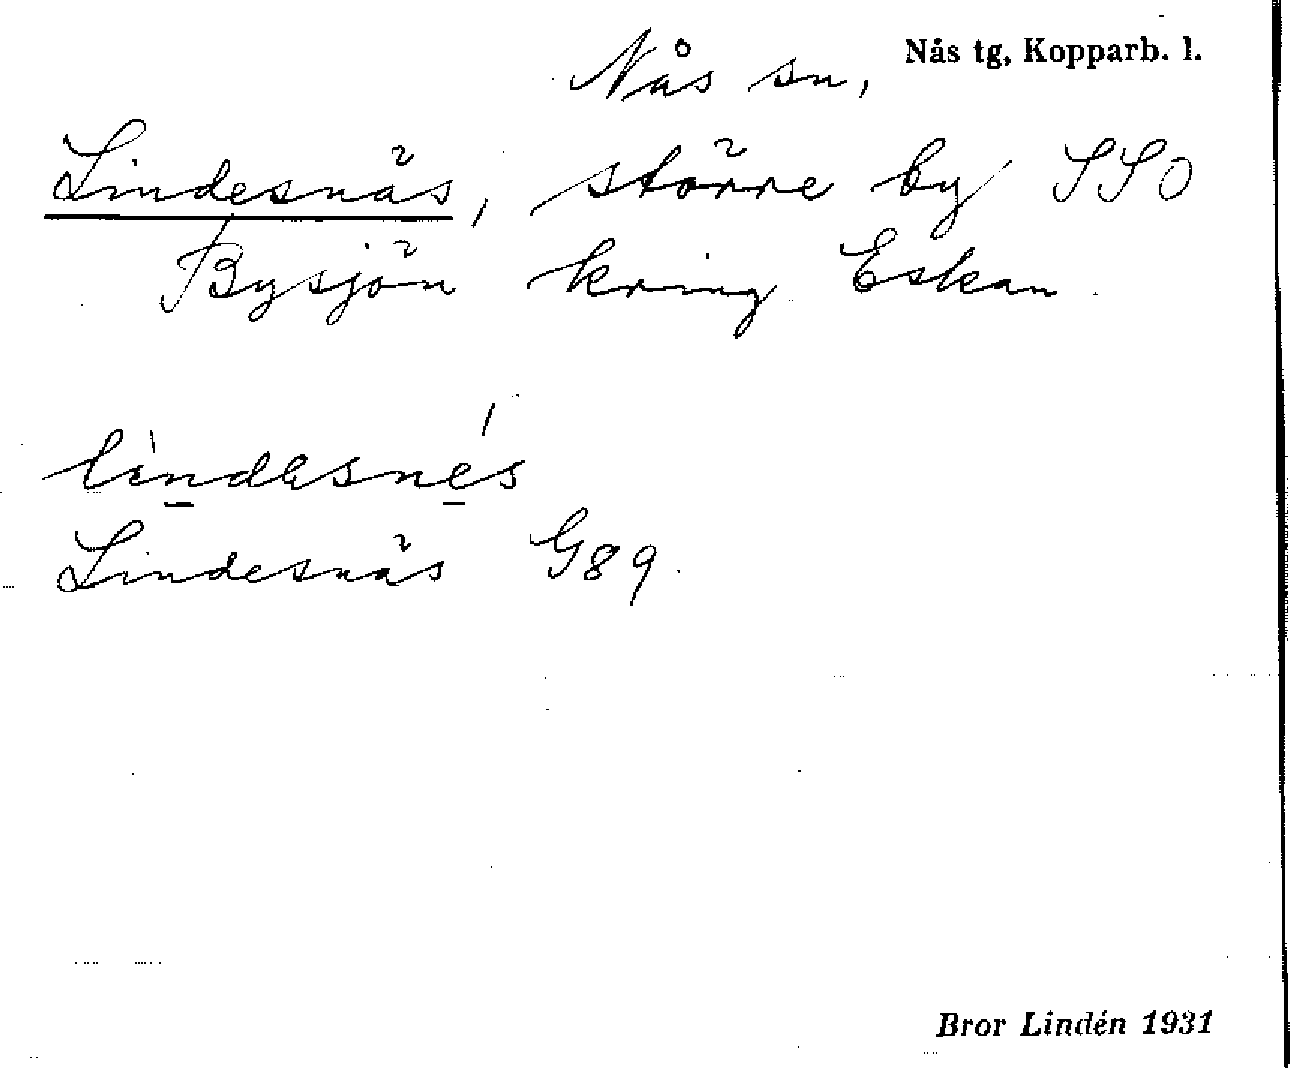 Nås sn, Nås tg, Kopparb. l.
Lindesnäs, större by SSO
Bysjön kring Eskan.
lìndəsnés
Lindesnäs G89.
Bror Lindén 1931